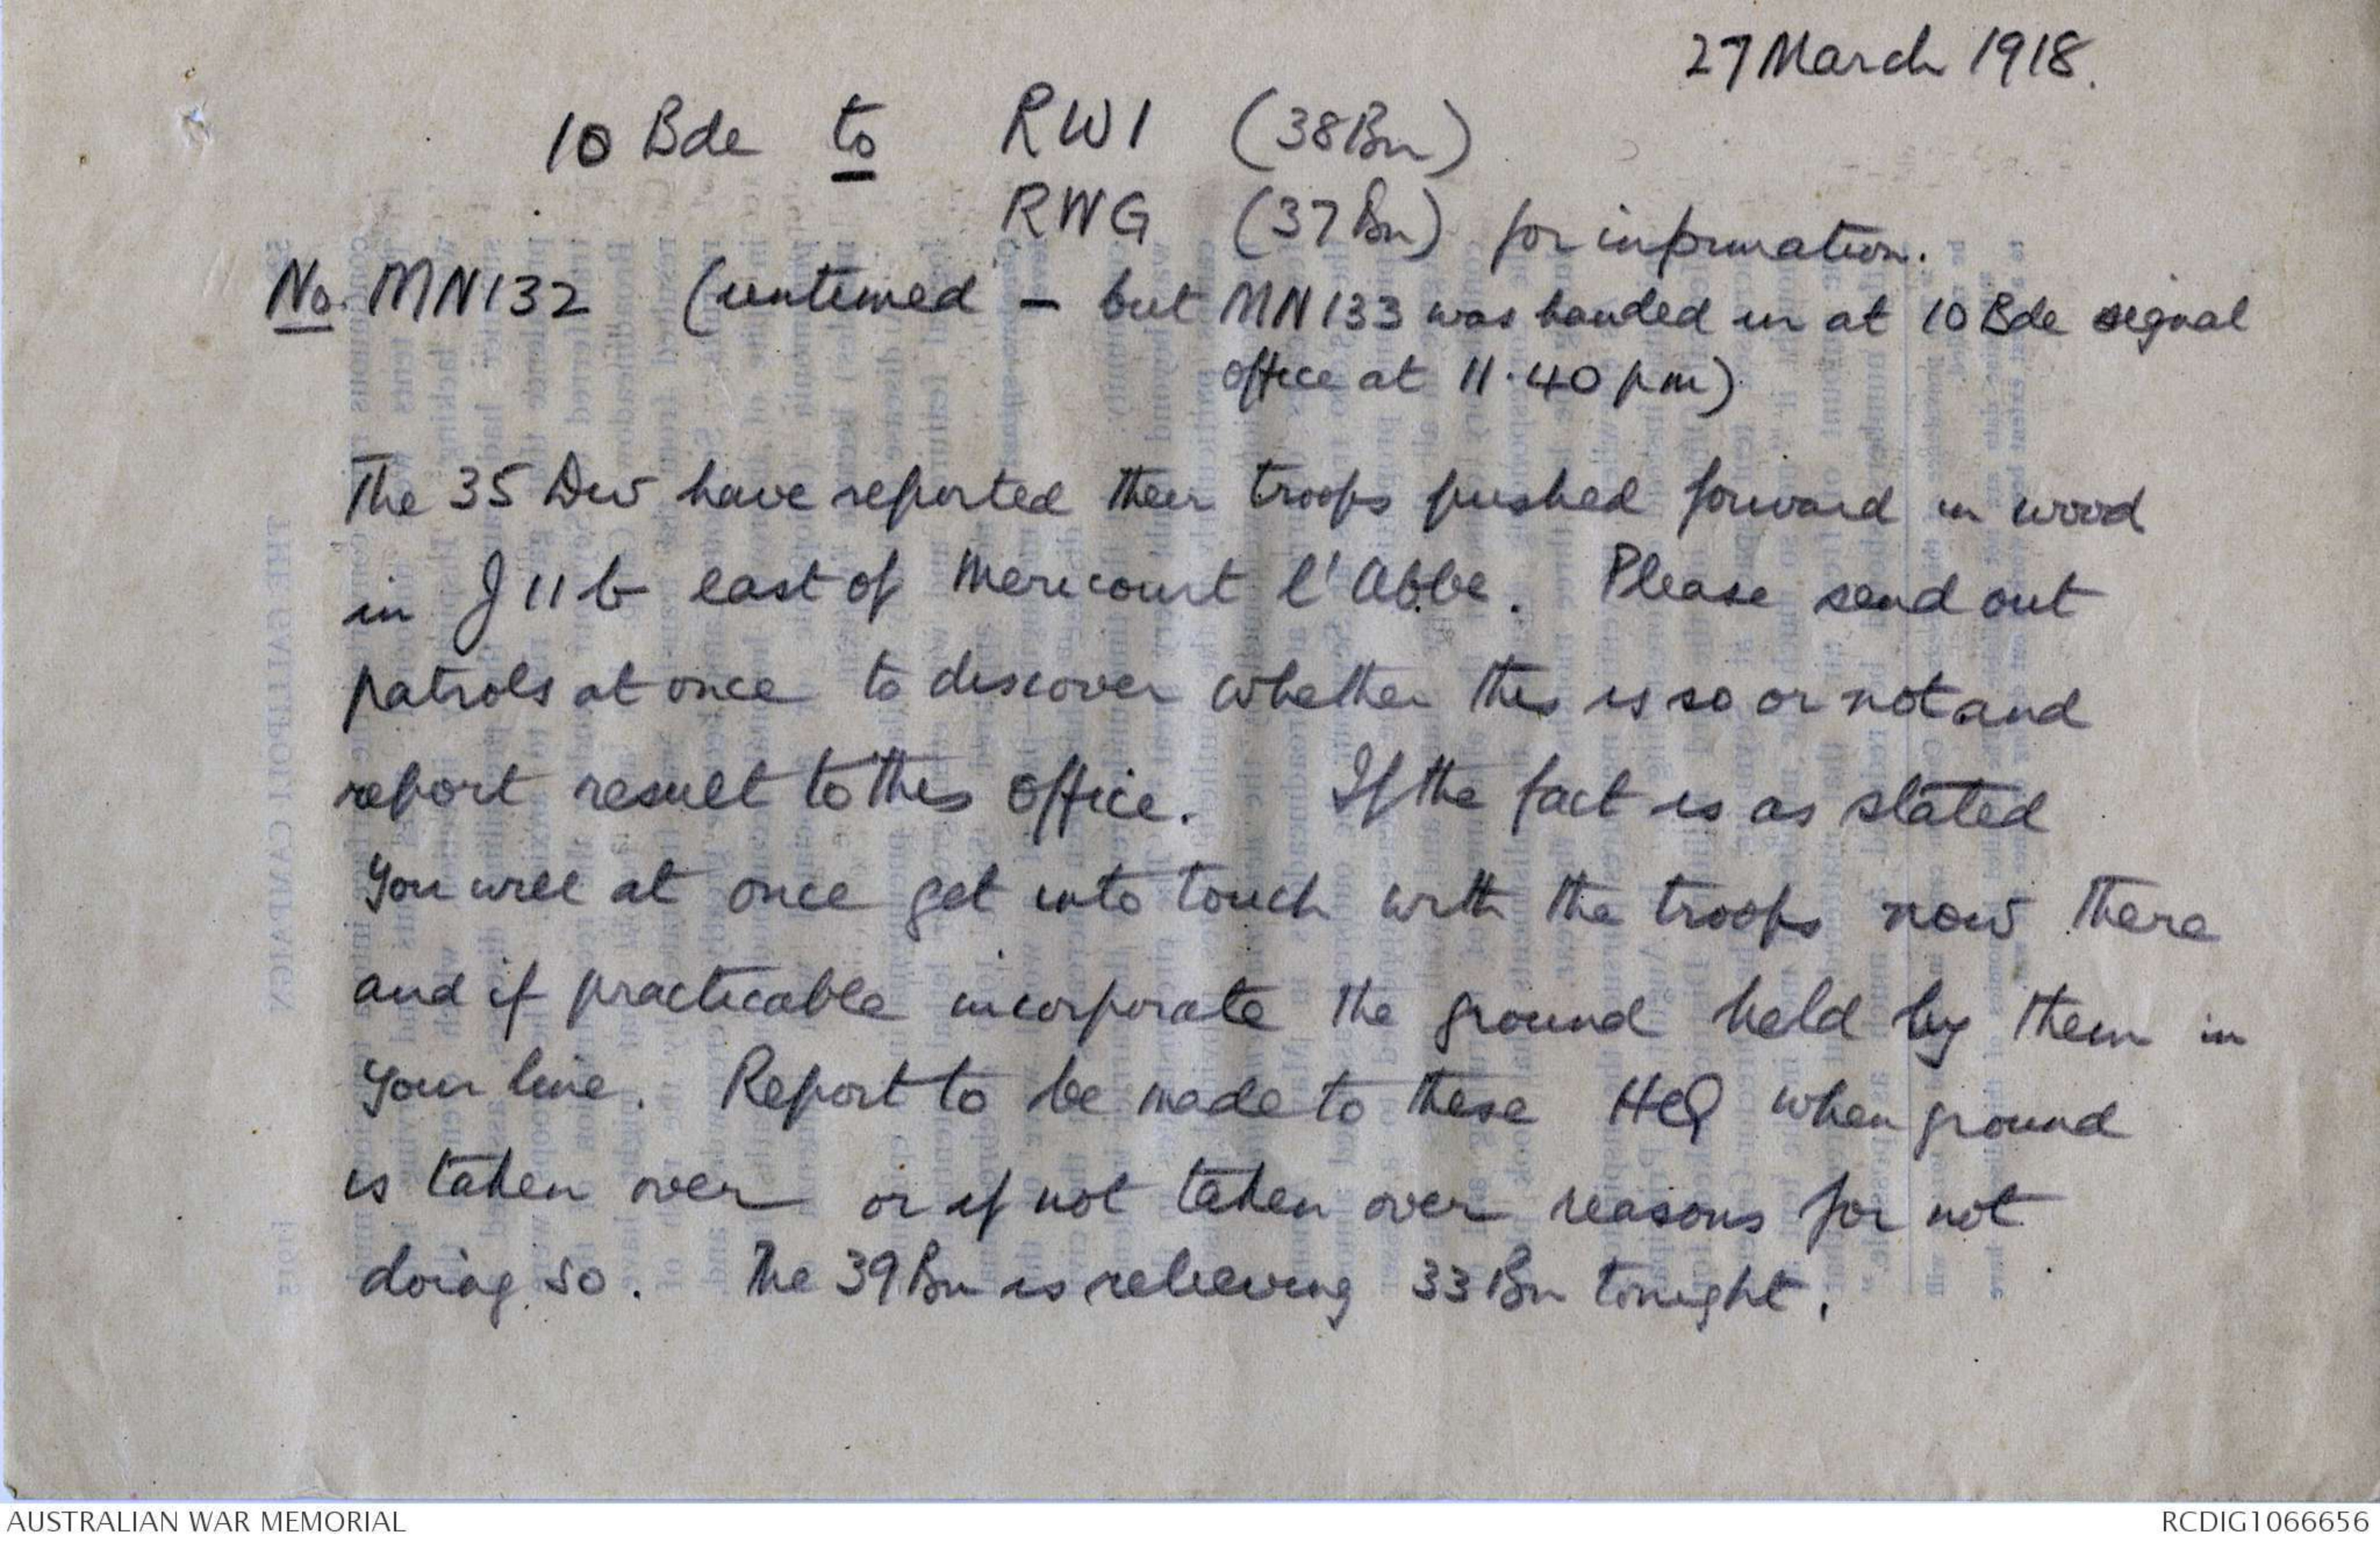 27 March 1918.
10 Bde to RWI (38Bn)
RWG (37Bn) for information.
No. MN132 (untimed - but MN133 was handed in at 10 Bde signal
office at 11.40 pm)
The 35 Div have reported their troops pushed forward in wood
in J11b east of Mericourt l'Abbe. Please send out
patrols at once to discover whether this is so or not and
report result to this office. If the fact is as stated
you will at once get into touch with the troops now there
and if practicable incorporate the ground held by them in
your line. Report to be made to these HQ when ground
is taken over or if not taken over reasons for not
doing so. The 39Bn is relieving 33Bn tonight.
AUSTRALIAN WAR MEMORIAL
RCDIG1066656